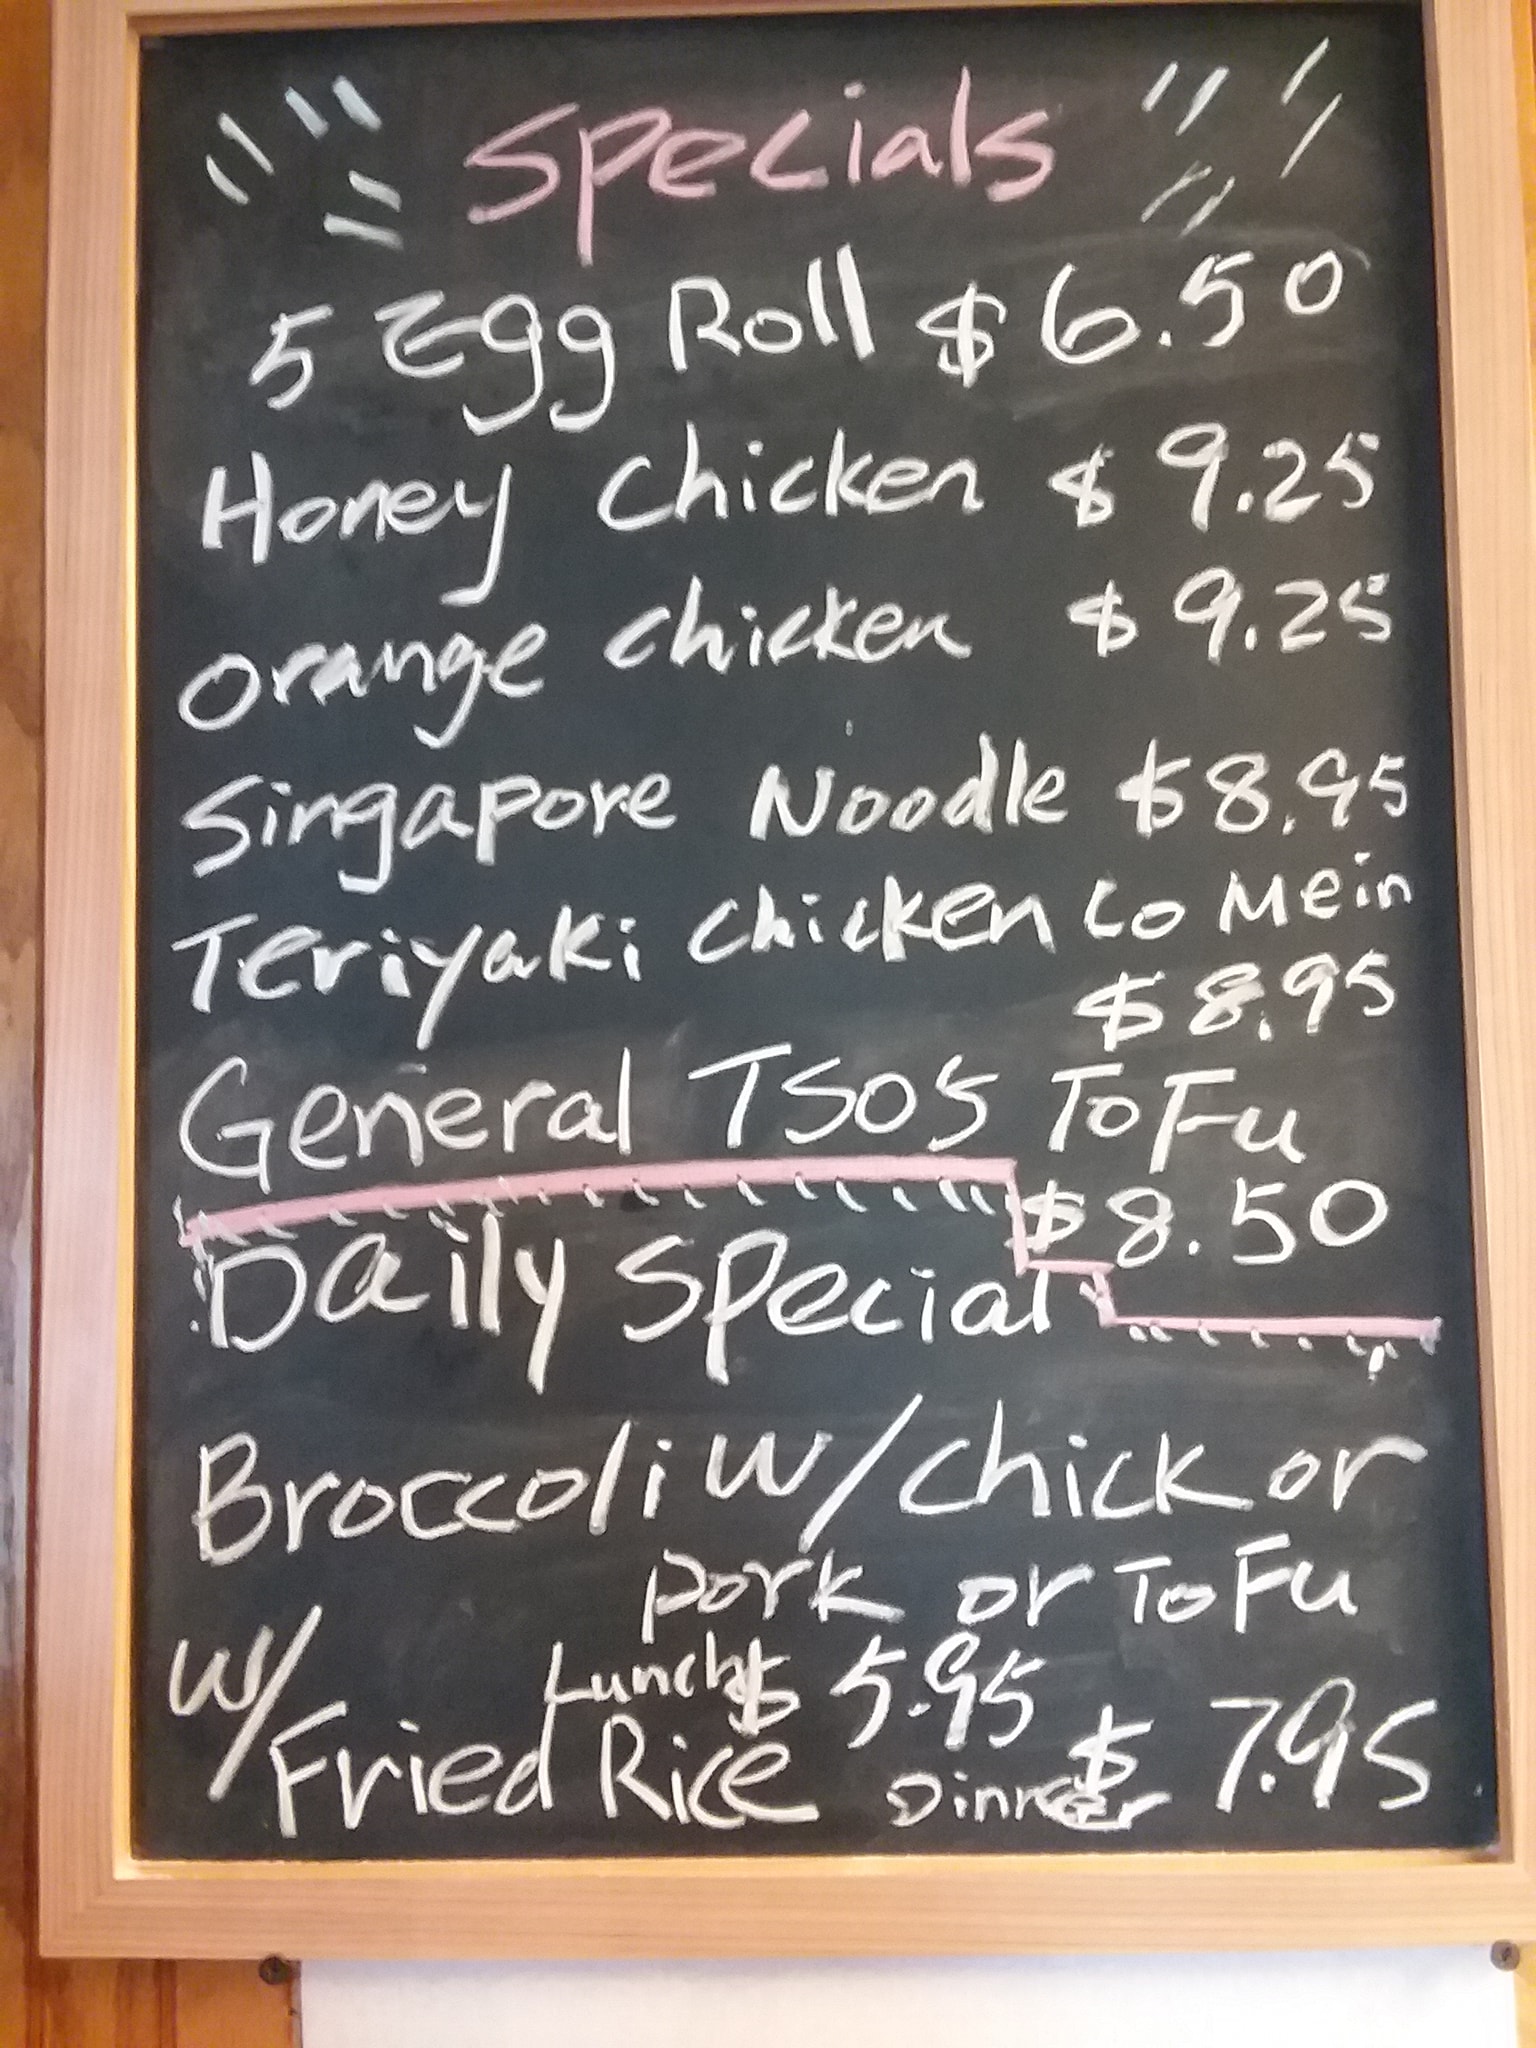 Specials
5 Egg Roll $6.50
Honey Chicken $9.25
Orange Chicken $9.25
Singapore Noodle $8.95
Teriyaki Chicken Lo Mein
$8.95
General TSOS ToFu
$8.50
Daily Special
Broccoli w/chick or
pork or ToFu
Lunch $5.95
w/Fried Rice Dinner $7.95